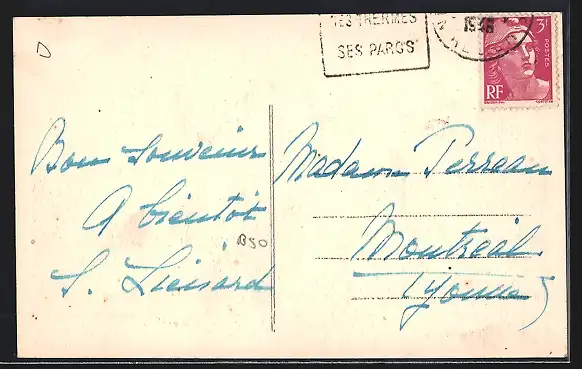 SES THERMES
SES PARCS
1948
3F
POSTES
RF
Bon Souvenir
A bientôt
S. Liénard
B50
Madame Perreau
Montréal
(Yonne)